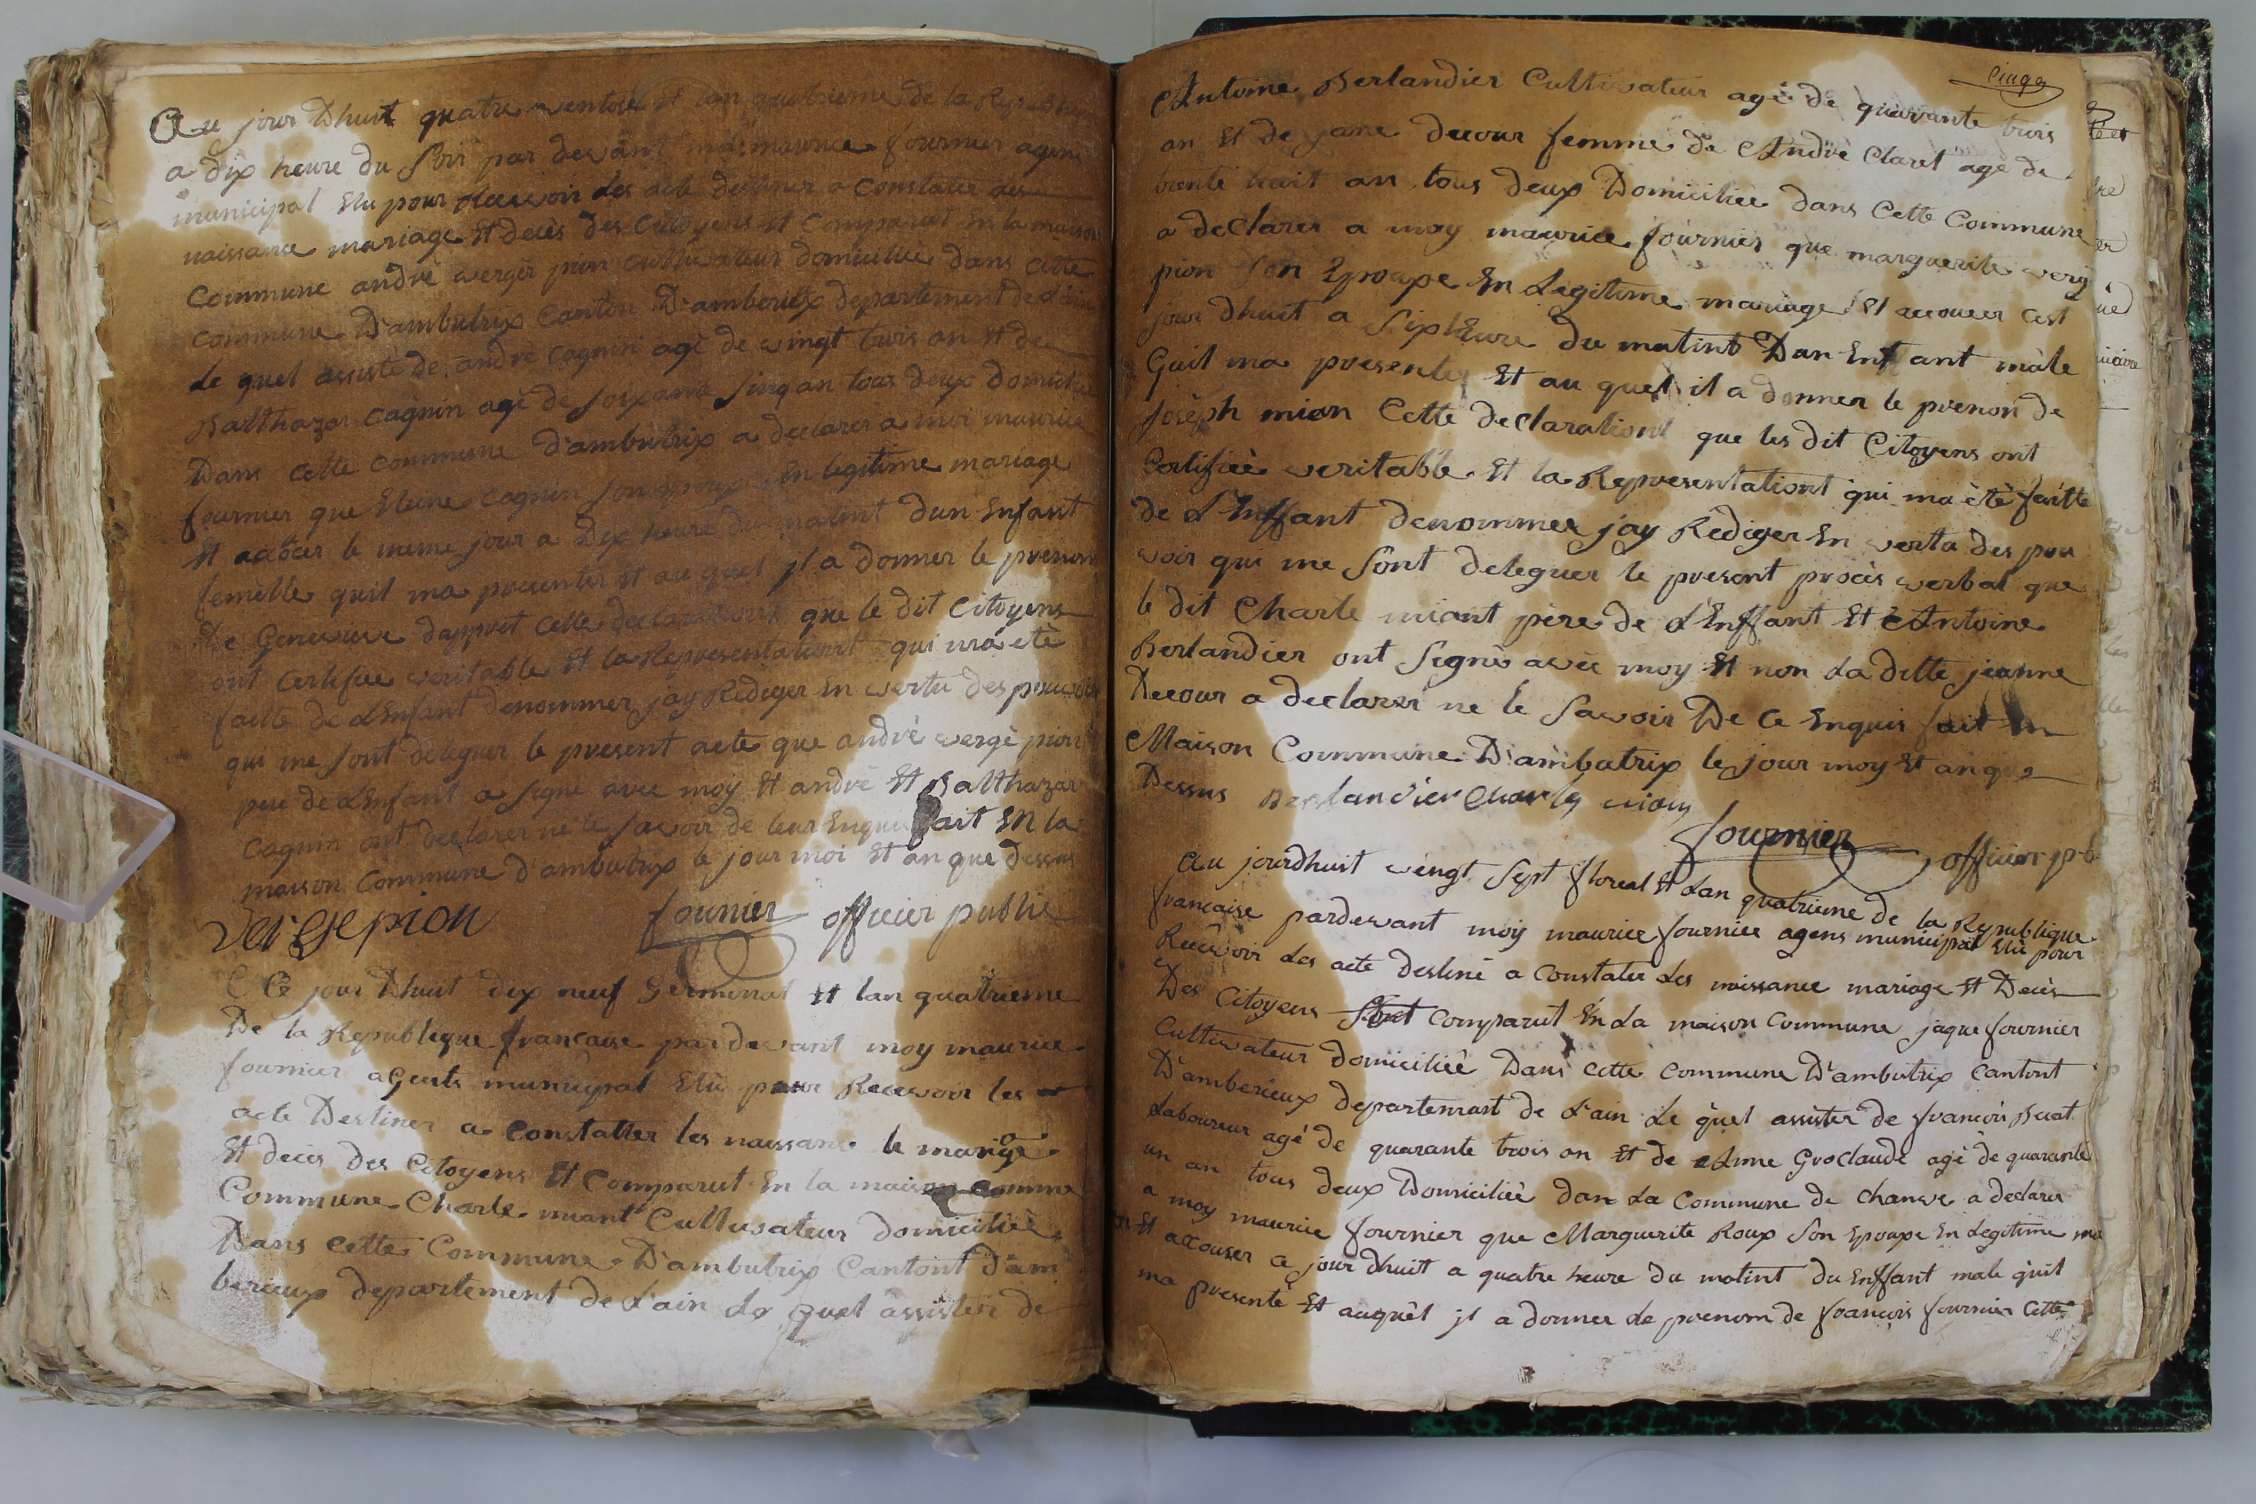 Au jour Dhuit quatre ventose Et lan quatrieme de la Republi
a dix heure du Soir par devant moi maurice fournier agens
municipal Elu pour Recevoir les acte destiner a Constater les
naissance mariage Et decès des Citoyens Et Comparut En la maison
Commune andré vergér pion Cultivateur domicilié dans cette
Commune D'ambutrix Canton D'amberieux departement de L'ain
Le quel assisté de andré Cagnin agé de vingt trois an Et de
Balthazar Cagnin agé de Soixante Sinq an tous deux domicilié
Dans cette Commune D'ambutrix a declarer a moi maurice
fournier que Cagnin Son Epouxe En legitime mariage
Et accocer le meme jour a Dix heure du matint dun Enfant
femelle quil ma presenter Et au quel jl a donner le prenom
De Genevieve dappret cette declarationt que le dit Citoyens
ont Certifiee veritable Et la Representationt qui ma eté
faitte de L'Enfant denommer jay Rediger En vertu des pouvoir
qui me Sont deleguer le present acte que andré vergé pion
pere de L'Enfant a Signe avec moy Et andré Et Balthazar
Cagnin ont declarer ne le Savoir de leur Enquis fait En la
maison Commune d'ambutrix le jour moi Et an que dessus
vergepion fournier officier public
Ce jour Dhuit dix neuf Germinal Et lan quatrieme
De la Republique francaise par devant moy maurice
fournier agents municipal Elu pour Recevoir les
acte Destiner a Constatter les naissance le mariage
Et deces des Citoyens Et Comparut En la maison comme
Commune Charle miant Cultivateur domicilié
Dans cette Commune D'ambutrix Cantont D'am
berieux departement de L'ain Le quel assister de
Cinq
Antoine Berlandier Cultivateur agé de quarante trois
an Et de jane decour femme de André Claret agé de
trente huit an tous deux Domiciliée dans Cette Commune
a declarer a moy maurice fournier que marguerite verg
pion Son Epouxe En Legitime mariage Et accoucer cest
jour dhuit a Sixt Eure du matint Dan Enfant mâle
Quil ma presenter Et au quel il a donner le prenon de
Joseph mion Cette declarationt que les dit Citoyens ont
Certifiée veritable Et la Representationt qui ma été faitte
de L'Enffant denommer jay Rediger En vertu des pou
voir qui me Sont deleguer le present procès verbal que
le dit Charle miont père de L'Enffant Et Antoine
Berlandier ont Signé avec moy Et non La ditte jeanne
Decour a declarer ne le Savoir De Ce Enquis fait En
Maison Commune D'ambutrix le jour moy Et an que
Dessus Berlandier Charle mion
fournier officier pb
Au jourdhuit vingt Sept floreal Et Lan quatrieme de la Republique
francaise pardevant moy maurice fournier agens municipal Elu pour
Recevoir Les acte destiné a Constater Les naissance mariage Et Decès
Des Citoyens Sont Comparut En La maison Commune jaque fournier
Cultivateur domiciliée Dans cette Commune D'ambutrix Cantont
D'amberieux departemant de L'ain Le quel assister de francois Buat
Laboureur agé de quarante trois an Et de Anne Groclaude agé de quarante
un an tous deux Domiciliée dan La Commune de Chanve a declarer
a moy maurice fournier que Marguerite Roux Son Epouxe En Legitime ma
Et accouser ce jour dhuit a quatre heure du matint du Enffant male quil
ma presenté Et auquel jl a donner Le prenom de francois fournier Cette